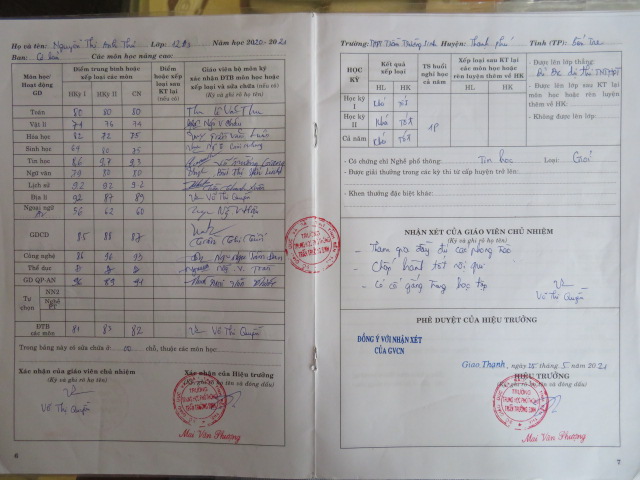 Họ và tên: Nguyễn Thị Anh Thư Lớp: 12A3 Năm học 2020-2021
Ban: Cơ bản Các môn học nâng cao:
Môn học/ Hoạt động GD
Điểm trung bình hoặc xếp loại các môn
HKỳ I HKỳ II CN
Điểm hoặc xếp loại sau KT lại (nếu có)
Giáo viên bộ môn ký xác nhận ĐTB môn học hoặc và sửa chữa (nếu có)
(Ký và ghi rõ họ tên)
Toán 80 80 80
Vật lí 74 74 74
Hóa học 82 72 75
Sinh học 64 80 75
Tin học 8.6 9.7 9.3
Ngữ văn 79 80 80
Lịch sử 9.2 9.2 9.2
Địa lí 92 87 89 Võ Thị Quyên
Ngoại ngữ AV 56 62 60
GDCD 85 88 87
Công nghệ
Thể dục Đ Đ Đ
GD QP-AN 96 89 91
Tự chọn
NN2
Nghề PT
ĐTB các môn 81 83 82 Võ Thị Quyên
Trong bảng này có sửa chữa ở: 00 chỗ, thuộc các môn học:
Xác nhận của giáo viên chủ nhiệm
(Ký và ghi rõ họ tên)
Võ Thị Quyên
Xác nhận của Hiệu trưởng
(Ký, ghi rõ họ tên và đóng dấu)
Mai Văn Phương
6
Trường: THPT Trần Trường Sinh Huyện: Thạnh Phú Tỉnh (TP): Bến Tre
HỌC KỲ
Kết quả xếp loại
HL HK
TS buổi nghỉ học cả năm
Xếp loại sau KT lại các môn học hoặc rèn luyện thêm về HK
HL HK
Học kỳ I Khá Tốt
Học kỳ II Khá Tốt
Cả năm Khá Tốt
1P
- Được lên lớp thẳng:
- Được lên lớp sau KT lại môn học hoặc rèn luyện thêm về HK:
- Không được lên lớp:
- Có chứng chỉ Nghề phổ thông: Tin học Loại: Giỏi
- Được giải thưởng trong các kỳ thi từ cấp huyện trở lên:
- Khen thưởng đặc biệt khác:
NHẬN XÉT CỦA GIÁO VIÊN CHỦ NHIỆM
(Ký và ghi rõ họ tên)
- Tham gia đầy đủ các phong trào
- Chấp hành tốt nội qui
- Có cố gắng trong học tập
Võ Thị Quyên
PHÊ DUYỆT CỦA HIỆU TRƯỞNG
ĐỒNG Ý VỚI NHẬN XÉT
CỦA GVCN
Giao Thạnh, ngày 25 tháng 5 năm 2021
HIỆU TRƯỞNG
(Ký, ghi rõ họ tên và đóng dấu)
TRƯỜNG
TRUNG HỌC PHỔ THÔNG
TRẦN TRƯỜNG SINH
Mai Văn Phương
7